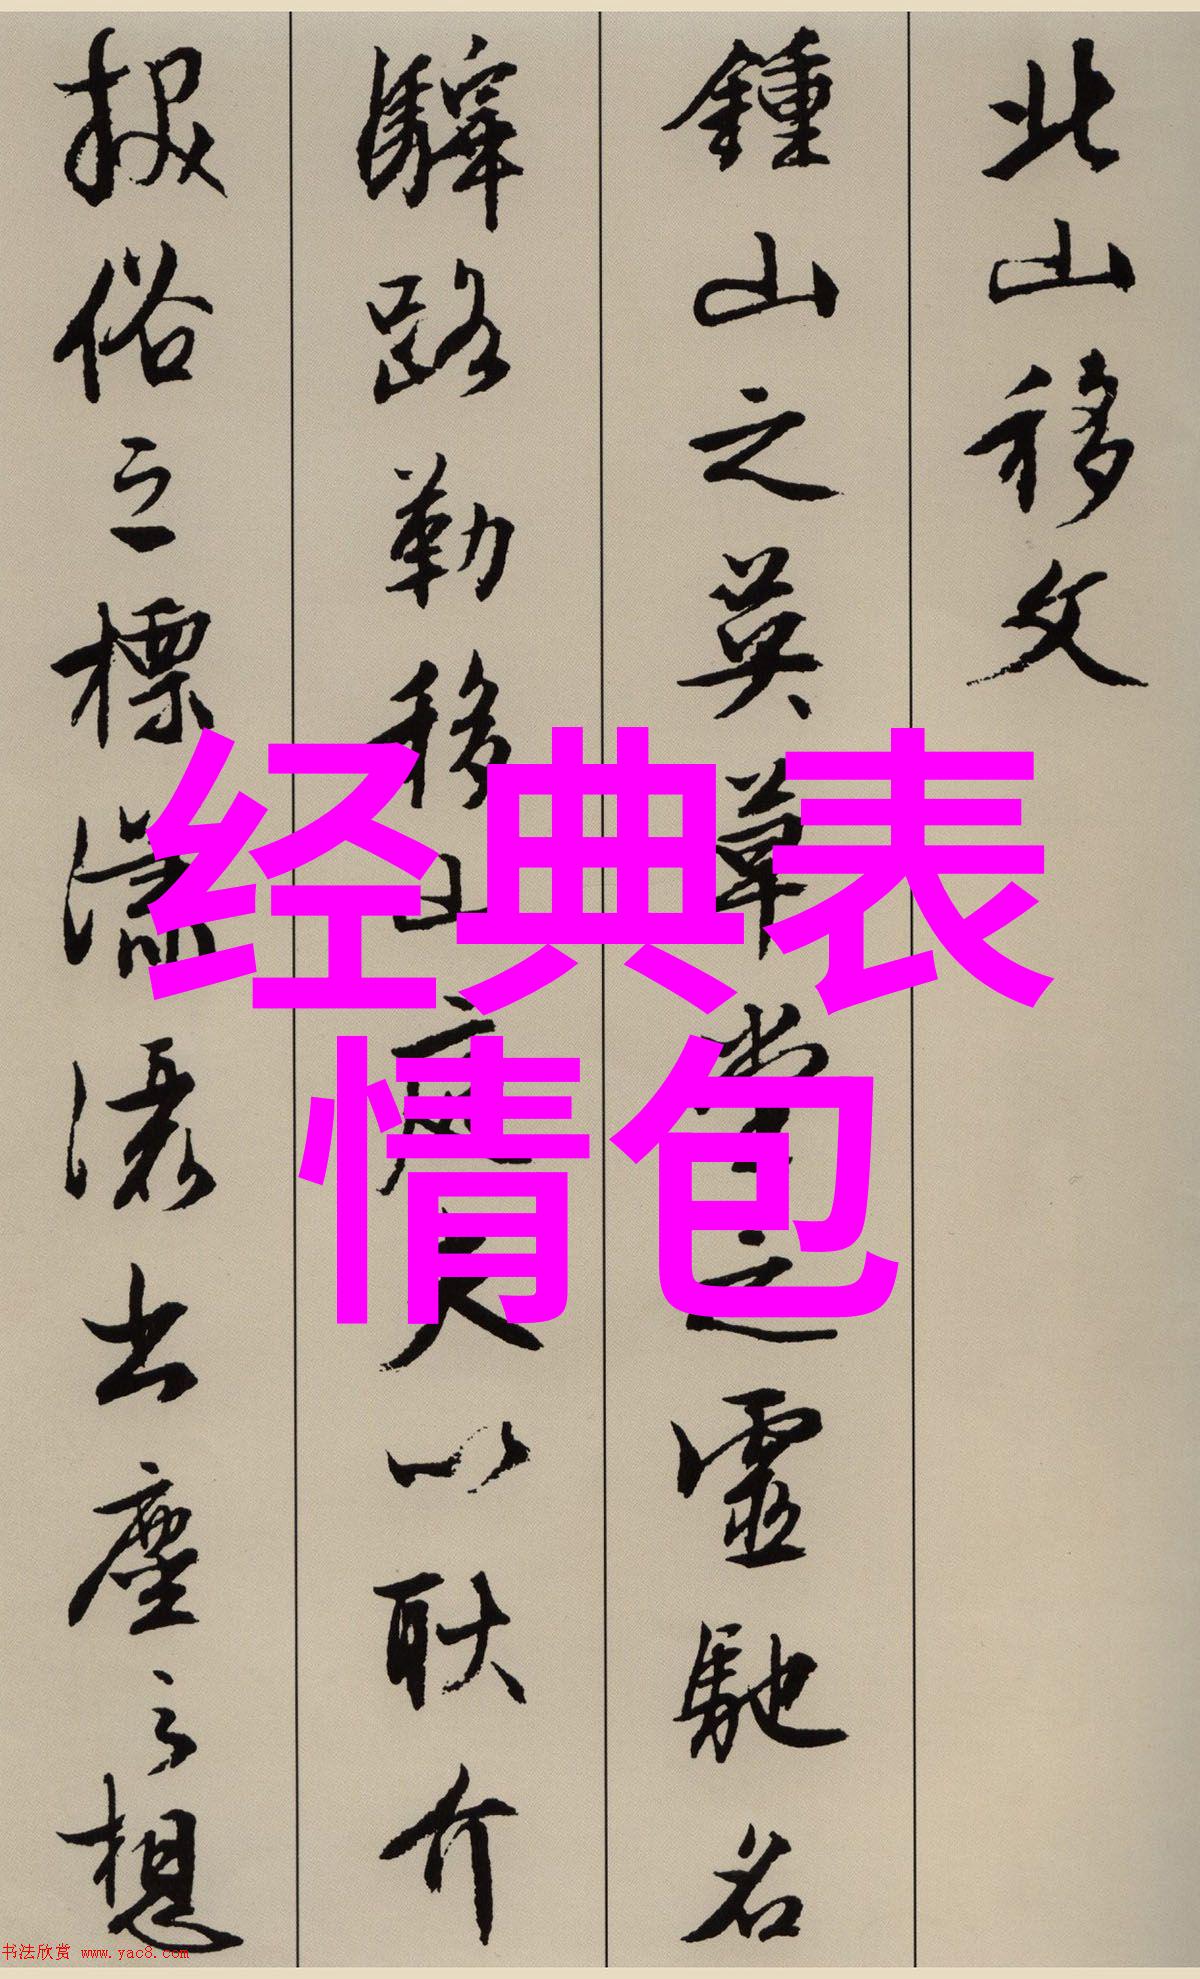 北山移文
鍾山之英草堂之靈馳名
驛路勒移山庭夫以耿介
拔俗之標瀟灑出塵之想
经典表
情包
书法欣赏 www.yac8.com